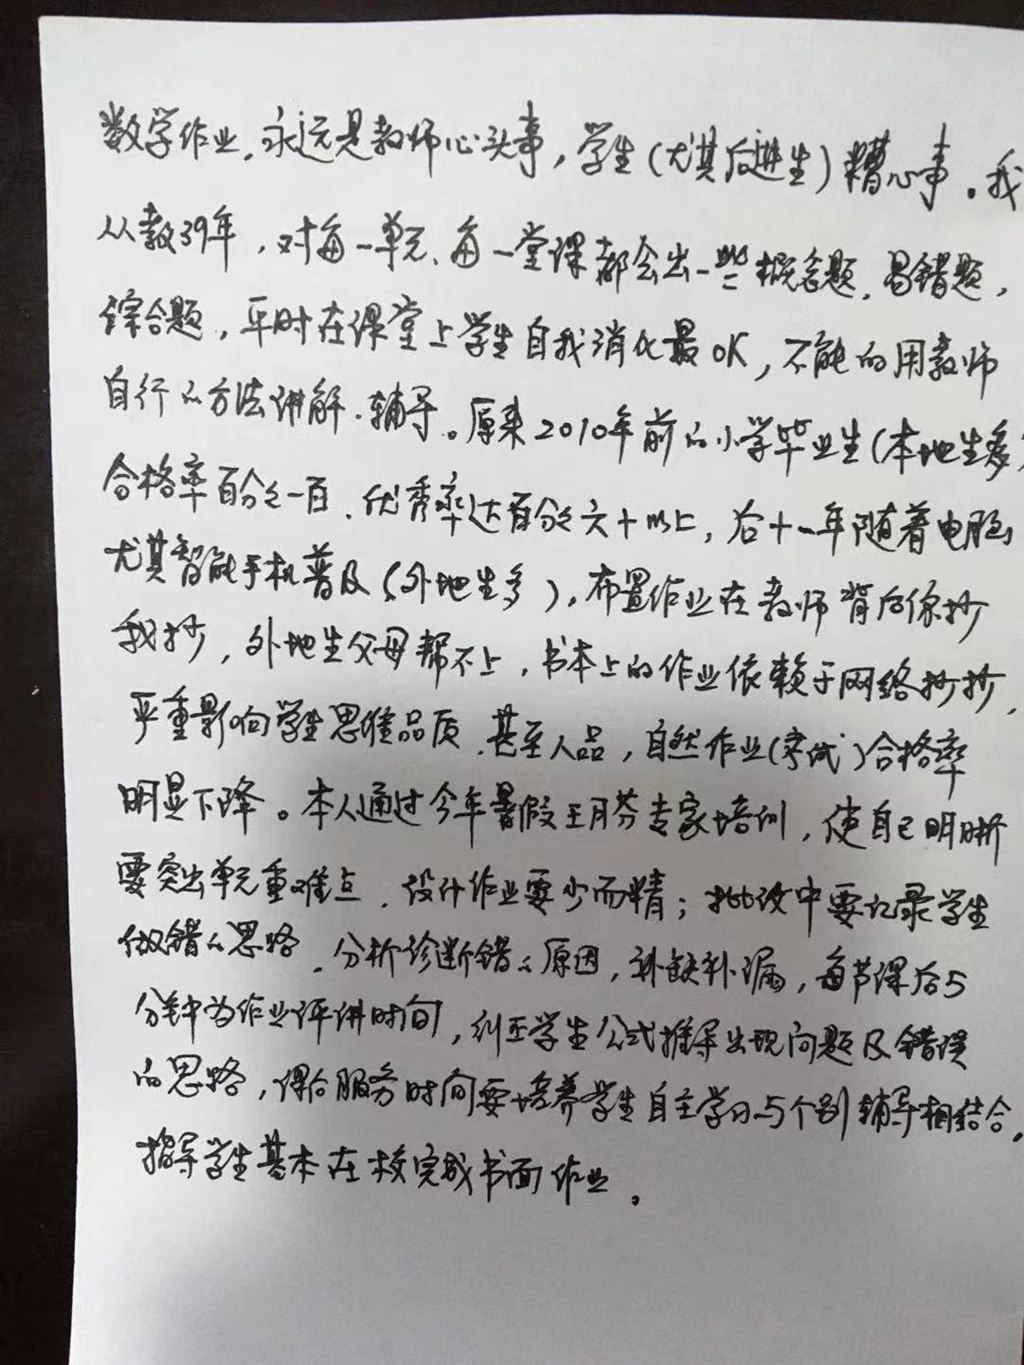 数学作业,永远是教师心头事,学生(尤其后进生)糟心事。我
从教39年,对每一单元、每一堂课都会出一些概念题、易错题,
综合题,平时在课堂上学生自我消化最OK,不能的用教师
自行的方法讲解、辅导。原来2010年前的小学毕业生(本地生多)
合格率百分之一百、优秀率达百分之六十以上,后十一年随着电脑
尤其智能手机普及(外地生多),布置作业在教师背后你抄
我抄,外地生父母帮不上,书本上的作业依赖于网络抄抄,
严重影响学生思维品质、甚至人品,自然作业(考试)合格率
明显下降。本人通过今年暑假王月芬专家培训,使自己明晰
要突出单元重难点、设计作业要少而精;批改中要记录学生
做错的思路、分析诊断错的原因,补缺补漏,每节课后5
分钟为作业评讲时间,纠正学生公式推导出现问题及错误
的思路,课后服务时间要培养学生自主学习与个别辅导相结合,
指导学生基本在校完成书面作业。